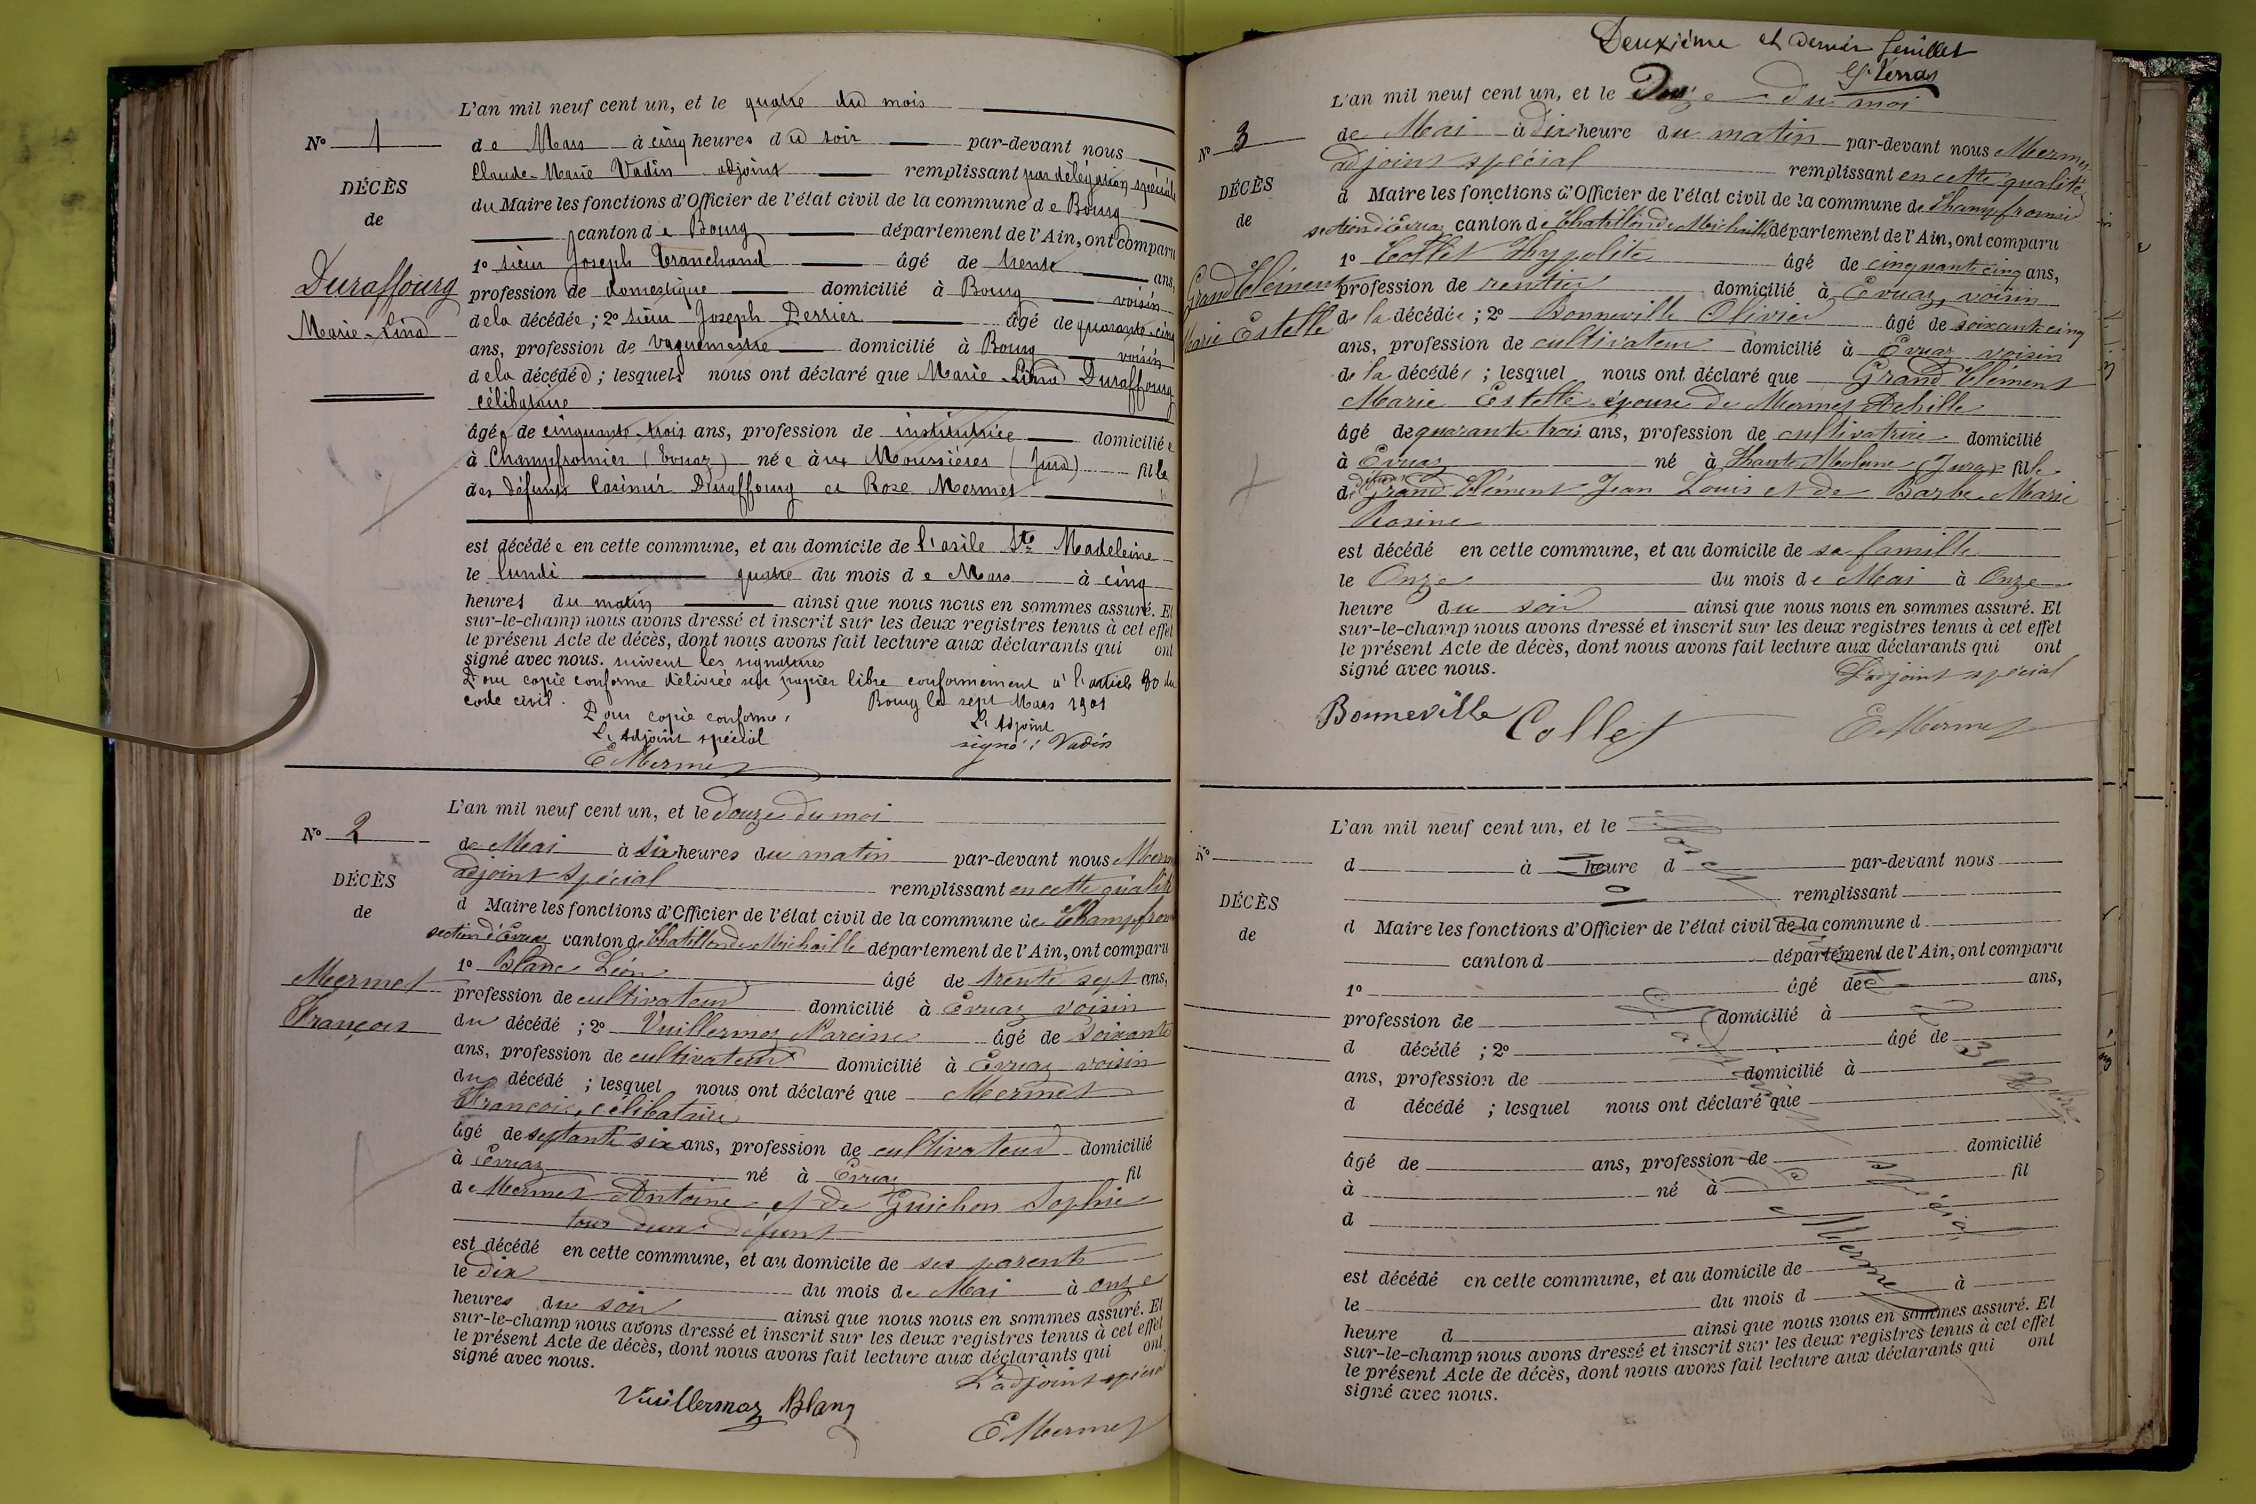 L'an mil neuf cent un, et le quatre du mois
N° 1
de Mars à cinq heures du soir par-devant nous
Claude-Marie Vadin adjoint remplissant par délégation spéciale
DÉCÈS
du Maire les fonctions d'Officier de l'état civil de la commune de Bourg
de
canton de Bourg département de l'Ain, ont comparu
1° sieur Joseph Tranchand âgé de trente ans,
Duraffourg
profession de domestique domicilié à Bourg voisin
Marie-Lina
de la décédée ; 2° sieur Joseph Perrier âgé de quarante cinq
ans, profession de vaguemestre domicilié à Bourg voisin
de la décédée ; lesquels nous ont déclaré que Marie Lina Duraffourg
célibataire
âgée de cinquante-trois ans, profession de institutrice domiciliée
à Champfromier (Evuaz) née aux Moussières (Jura) fille
des défunts Casimir Duraffourg et Rose Mermet
est décédée en cette commune, et au domicile de l'asile Ste Madeleine
le lundi quatre du mois de Mars à cinq
heures du matin ainsi que nous nous en sommes assuré. Et
sur-le-champ nous avons dressé et inscrit sur les deux registres tenus à cet effet
le présent Acte de décès, dont nous avons fait lecture aux déclarants qui ont
signé avec nous. suivent les signatures
Pour copie conforme délivrée sur papier libre conformément à l'article 80 du
code civil. Bourg le sept Mars 1901
Pour copie conforme, L'Adjoint
L'Adjoint spécial signé : Vadin
E Mermet
L'an mil neuf cent un, et le Douze du moi
N° 2
de Mai à six heures du matin par-devant nous Mermet
adjoint spécial remplissant en cette qualité
DÉCÈS
d Maire les fonctions d'Officier de l'état civil de la commune de Champfromier
de
section d'Evuaz canton de Chatillon de Michaille département de l'Ain, ont comparu
1° Blanc Léon âgé de trente sept ans,
Mermet
profession de cultivateur domicilié à Evuaz voisin
François
du décédé ; 2° Vuillermoz Narcisse âgé de soixante
ans, profession de cultivateur domicilié à Evuaz voisin
du décédé ; lesquel nous ont déclaré que Mermet
François, célibataire
âgé de septante six ans, profession de cultivateur domicilié
à Evuaz né à Evuaz fil
de Mermet Antoine et de Guichon Sophie
tous deux défunt
est décédé en cette commune, et au domicile de ses parents
le dix du mois de Mai à onze
heures du soir ainsi que nous nous en sommes assuré. Et
sur-le-champ nous avons dressé et inscrit sur les deux registres tenus à cet effet
le présent Acte de décès, dont nous avons fait lecture aux déclarants qui ont
signé avec nous.
L'adjoint spécial
Vuillermoz Blanc
E Mermet
Deuxième et dernier feuillet
L'an mil neuf cent un, et le Douze du moi
N° 3
de Mai à dix heure du matin par-devant nous Mermet
adjoint spécial remplissant en cette qualité
DÉCÈS
d Maire les fonctions d'Officier de l'état civil de la commune de Champfromier
de
section d'Evuaz canton de Chatillon de Michaille département de l'Ain, ont comparu
1° Collet Hypolite âgé de cinquante cinq ans,
Grand Clément
profession de rentier domicilié à Evuaz, voisin
Marie Estelle
de la décédée ; 2° Bonneville Olivier âgé de soixante cinq
ans, profession de cultivateur domicilié à Evuaz voisin
de la décédée ; lesquel nous ont déclaré que Grand Clément
Marie Estelle épouse de Mermet Achille
âgé de quarante trois ans, profession de cultivatrice domicilié
à Evuaz né à Haute Molune (Jura) fille
de Grand Clément Jean Louis et de Barbe Marie
Rosine
est décédé en cette commune, et au domicile de sa famille
le Onze du mois de Mai à Onze
heure du soir ainsi que nous nous en sommes assuré. Et
sur-le-champ nous avons dressé et inscrit sur les deux registres tenus à cet effet
le présent Acte de décès, dont nous avons fait lecture aux déclarants qui ont
signé avec nous.
L'adjoint spécial
Bonneville Collet E Mermet
L'an mil neuf cent un, et le
N°
d à heure d par-devant nous
remplissant
DÉCÈS
d Maire les fonctions d'Officier de l'état civil de la commune d
de
canton d département de l'Ain, ont comparu
1° âgé de ans,
profession de domicilié à
d décédé ; 2° âgé de
ans, profession de domicilié à
d décédé ; lesquel nous ont déclaré que
âgé de ans, profession de domicilié
à né à fil
d
est décédé en cette commune, et au domicile de
le du mois d à
heure d ainsi que nous nous en sommes assuré. Et
sur-le-champ nous avons dressé et inscrit sur les deux registres tenus à cet effet
le présent Acte de décès, dont nous avons fait lecture aux déclarants qui ont
signé avec nous.
L'adjoint spécial
E Mermet